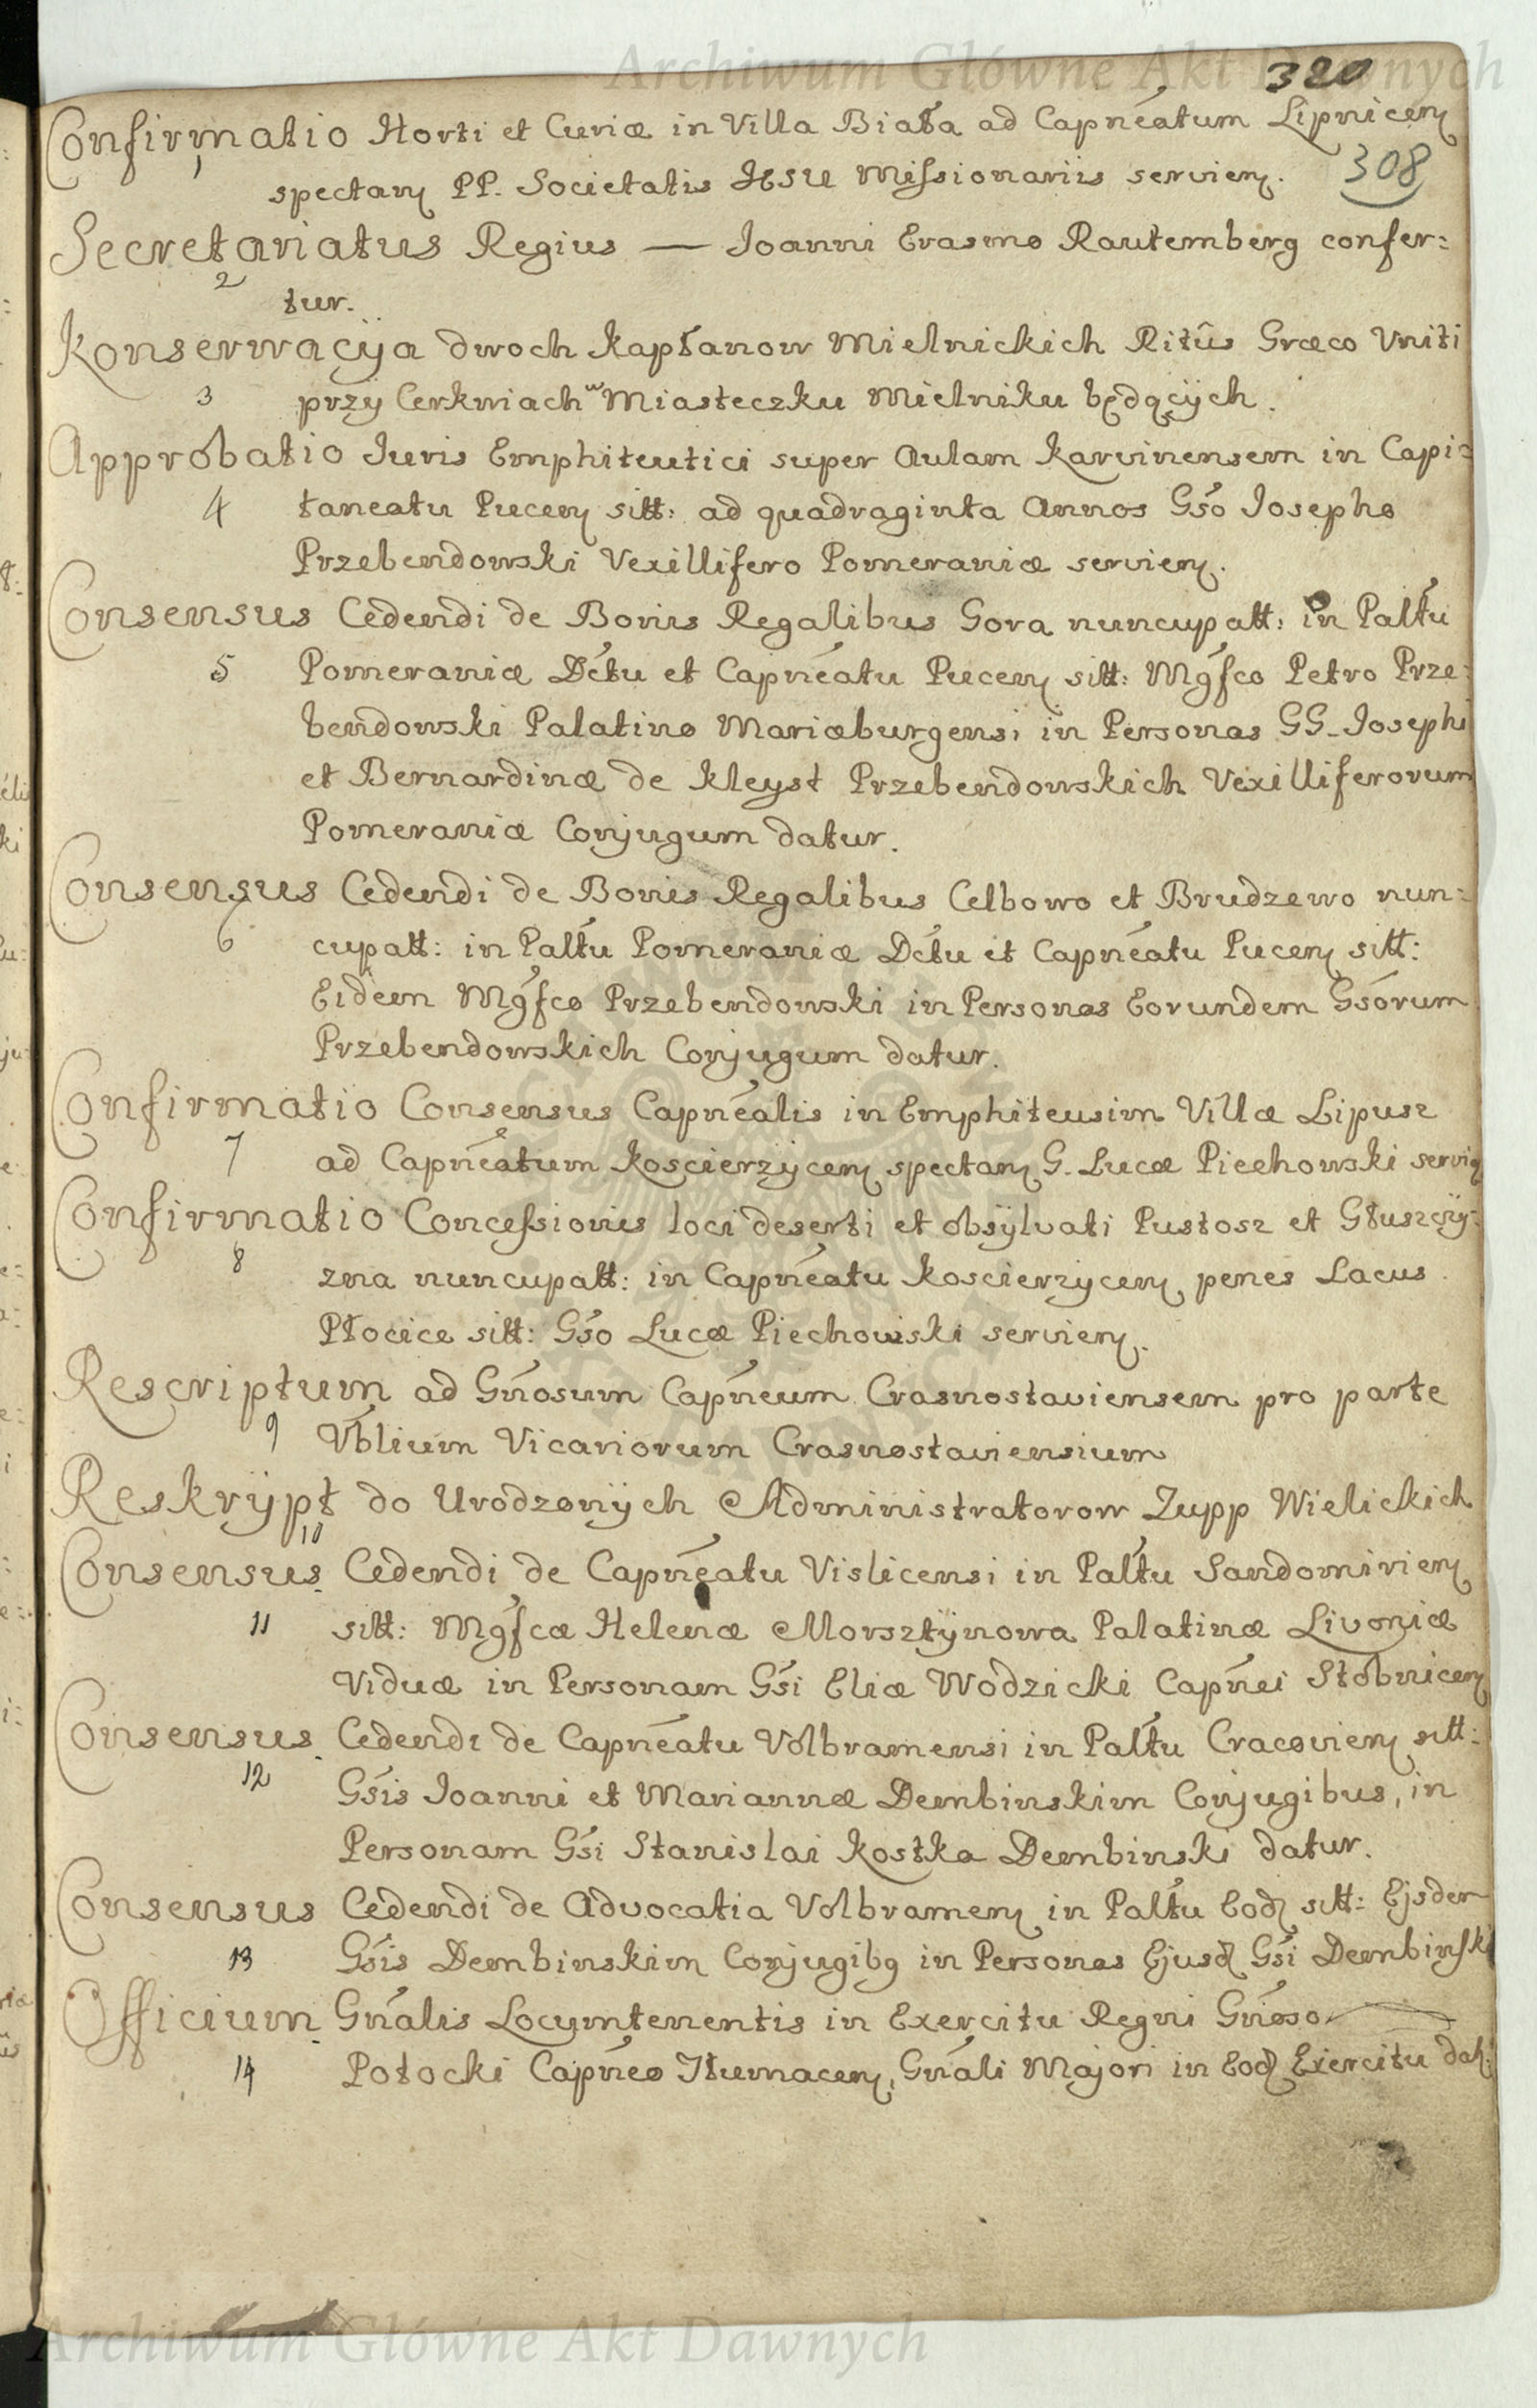 Archiwum Główne Akt Dawnych
320
Confirmatio Horti et Curiæ in Villa Biała ad Capnéatum Lipnicen
1 spectan PP. Societatis JESU Missionariis servien.
308
Secretariatus Regius — Joanni Erasmo Rautemberg confer:
2 tur.
Konserwacÿa dwoch Kapłanow Mielnickich Ritûs Græco Vniti
3 przÿ Cerkwiach w Miasteczku Mielniku będącÿch.
Approbatio Juris Emphiteutici super Aulam Karvinensem in Capi:
4 taneatu Pucen sitt: ad quadraginta Annos Gso Josepho
Przebendowski Vexillifero Pomeraniæ servien.
Consensus Cedendi de Bonis Regalibus Gora nuncupatt: in Palťu
5 Pomeraniæ Dctu et Capnéatu Pucen sitt: Mgfco Petro Prze:
bendowski Palatino Mariæburgensi in Personas GG. Josephi
et Bernardinæ de Kleyst Przebendowskich Vexilliferorum
Pomeraniæ Conjugum datur.
Consensus Cedendi de Bonis Regalibus Celbowo et Brudzewo nun:
6 cupatt: in Palťu Pomeraniæ Dctu et Capnéatu Pucen sitt:
Eidem Mgfco Przebendowski in Personas Eorundem Gsorum
Przebendowskich Conjugum datur.
Confirmatio Consensus Capnéalis in Emphiteusim Villæ Lipusz
7 ad Capnéatum Koscierzÿcen spectan G. Lucæ Piechowski servien
Confirmatio Concessionis loci deserti et obsÿlvati Pustosz et Głuszczÿ:
8 zna nuncupatt: in Capnéatu Koscierzycen penes Lacus
Płocice sitt: Gso Lucæ Piechowski servien.
Rescriptum ad Gnosum Capneum Crasnostaviensem pro parte
9 Vblium Vicariorum Crasnostaviensium
Reskrÿpt do Urodzonÿch Administratorow Zupp Wielickich
10
Consensus Cedendi de Capnéatu Vislicensi in Palťu Sandomirien
11 sitt: Mgfcæ Helenæ Morsztÿnowa Palatinæ Livoniæ
Viduæ in Personam Gsi Eliæ Wodzicki Capnei Stobnicen
Consensus Cedendi de Capnéatu Volbramensi in Palťu Cracovien sitt:
12 Gsis Joanni et Mariannæ Dembinskim Conjugibus, in
Personam Gsi Stanislai Kostka Dembinski datur.
Consensus Cedendi de Advocatia Volbramen in Palťu Eod sitt: Ejsdem
13 Gsis Dembinskim Conjugibq in Personas Ejusd Gsi Dembinski
Officium Gnalis Locumtenentis in Exercitu Regni Gnoso
14 Potocki Capneo Tłumacen, Gnali Majori in Eod Exercitu dat:
Archiwum Główne Akt Dawnych